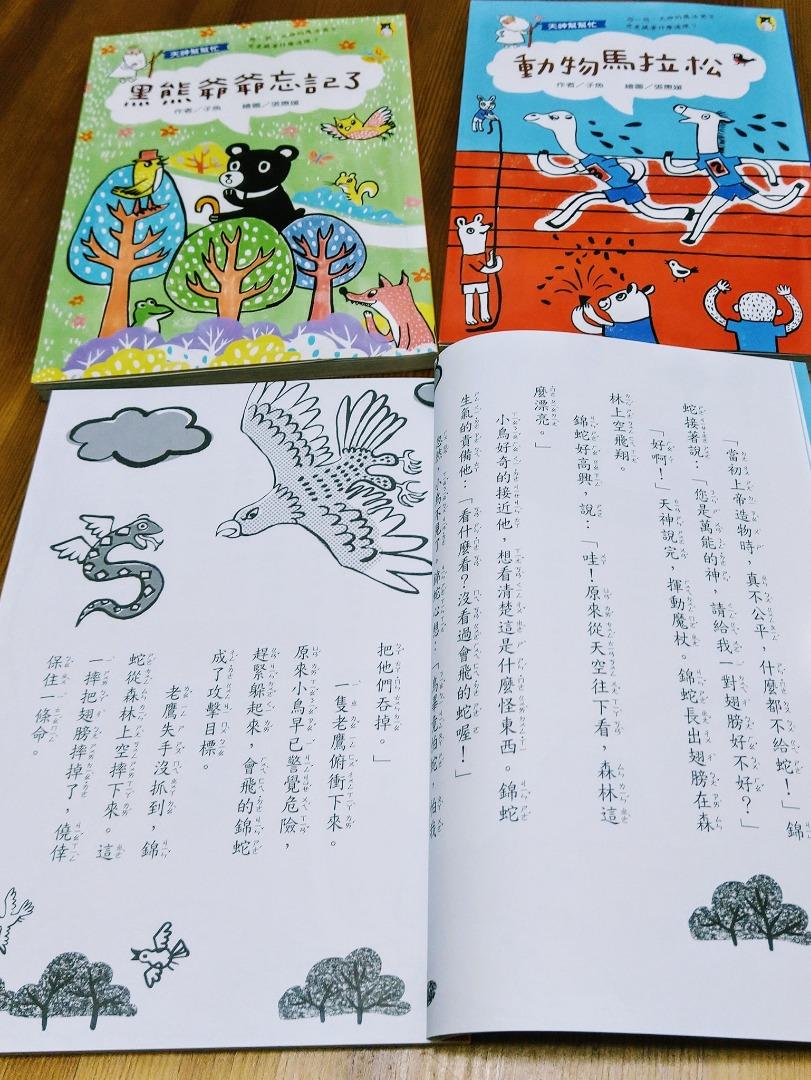 天神幫幫忙
黑熊爺爺忘記了
作者／子魚 繪圖／張惠媛
天神幫幫忙
動物馬拉松
作者／子魚 繪圖／張惠媛
2
「當初上帝造物時，真不公平，什麼都不給蛇！」錦
蛇接著說：「您是萬能的神，請給我一對翅膀好不好？」
「好啊！」天神說完，揮動魔杖。錦蛇長出翅膀在森
林上空飛翔。
錦蛇好高興，說：「哇！原來從天空往下看，森林這
麼漂亮。」
小鳥好奇的接近他，想看清楚這是什麼怪東西。錦蛇
生氣的責備他：「看什麼看？沒看過會飛的蛇喔！」
小鳥不見了，錦蛇心想：「
把他們吞掉。」
一隻老鷹俯衝下來。
原來小鳥早已警覺危險，
趕緊躲起來，會飛的錦蛇
成了攻擊目標。
老鷹失手沒抓到，錦
蛇從森林上空摔下來。這
一摔把翅膀摔掉了，僥倖
保住一條命。